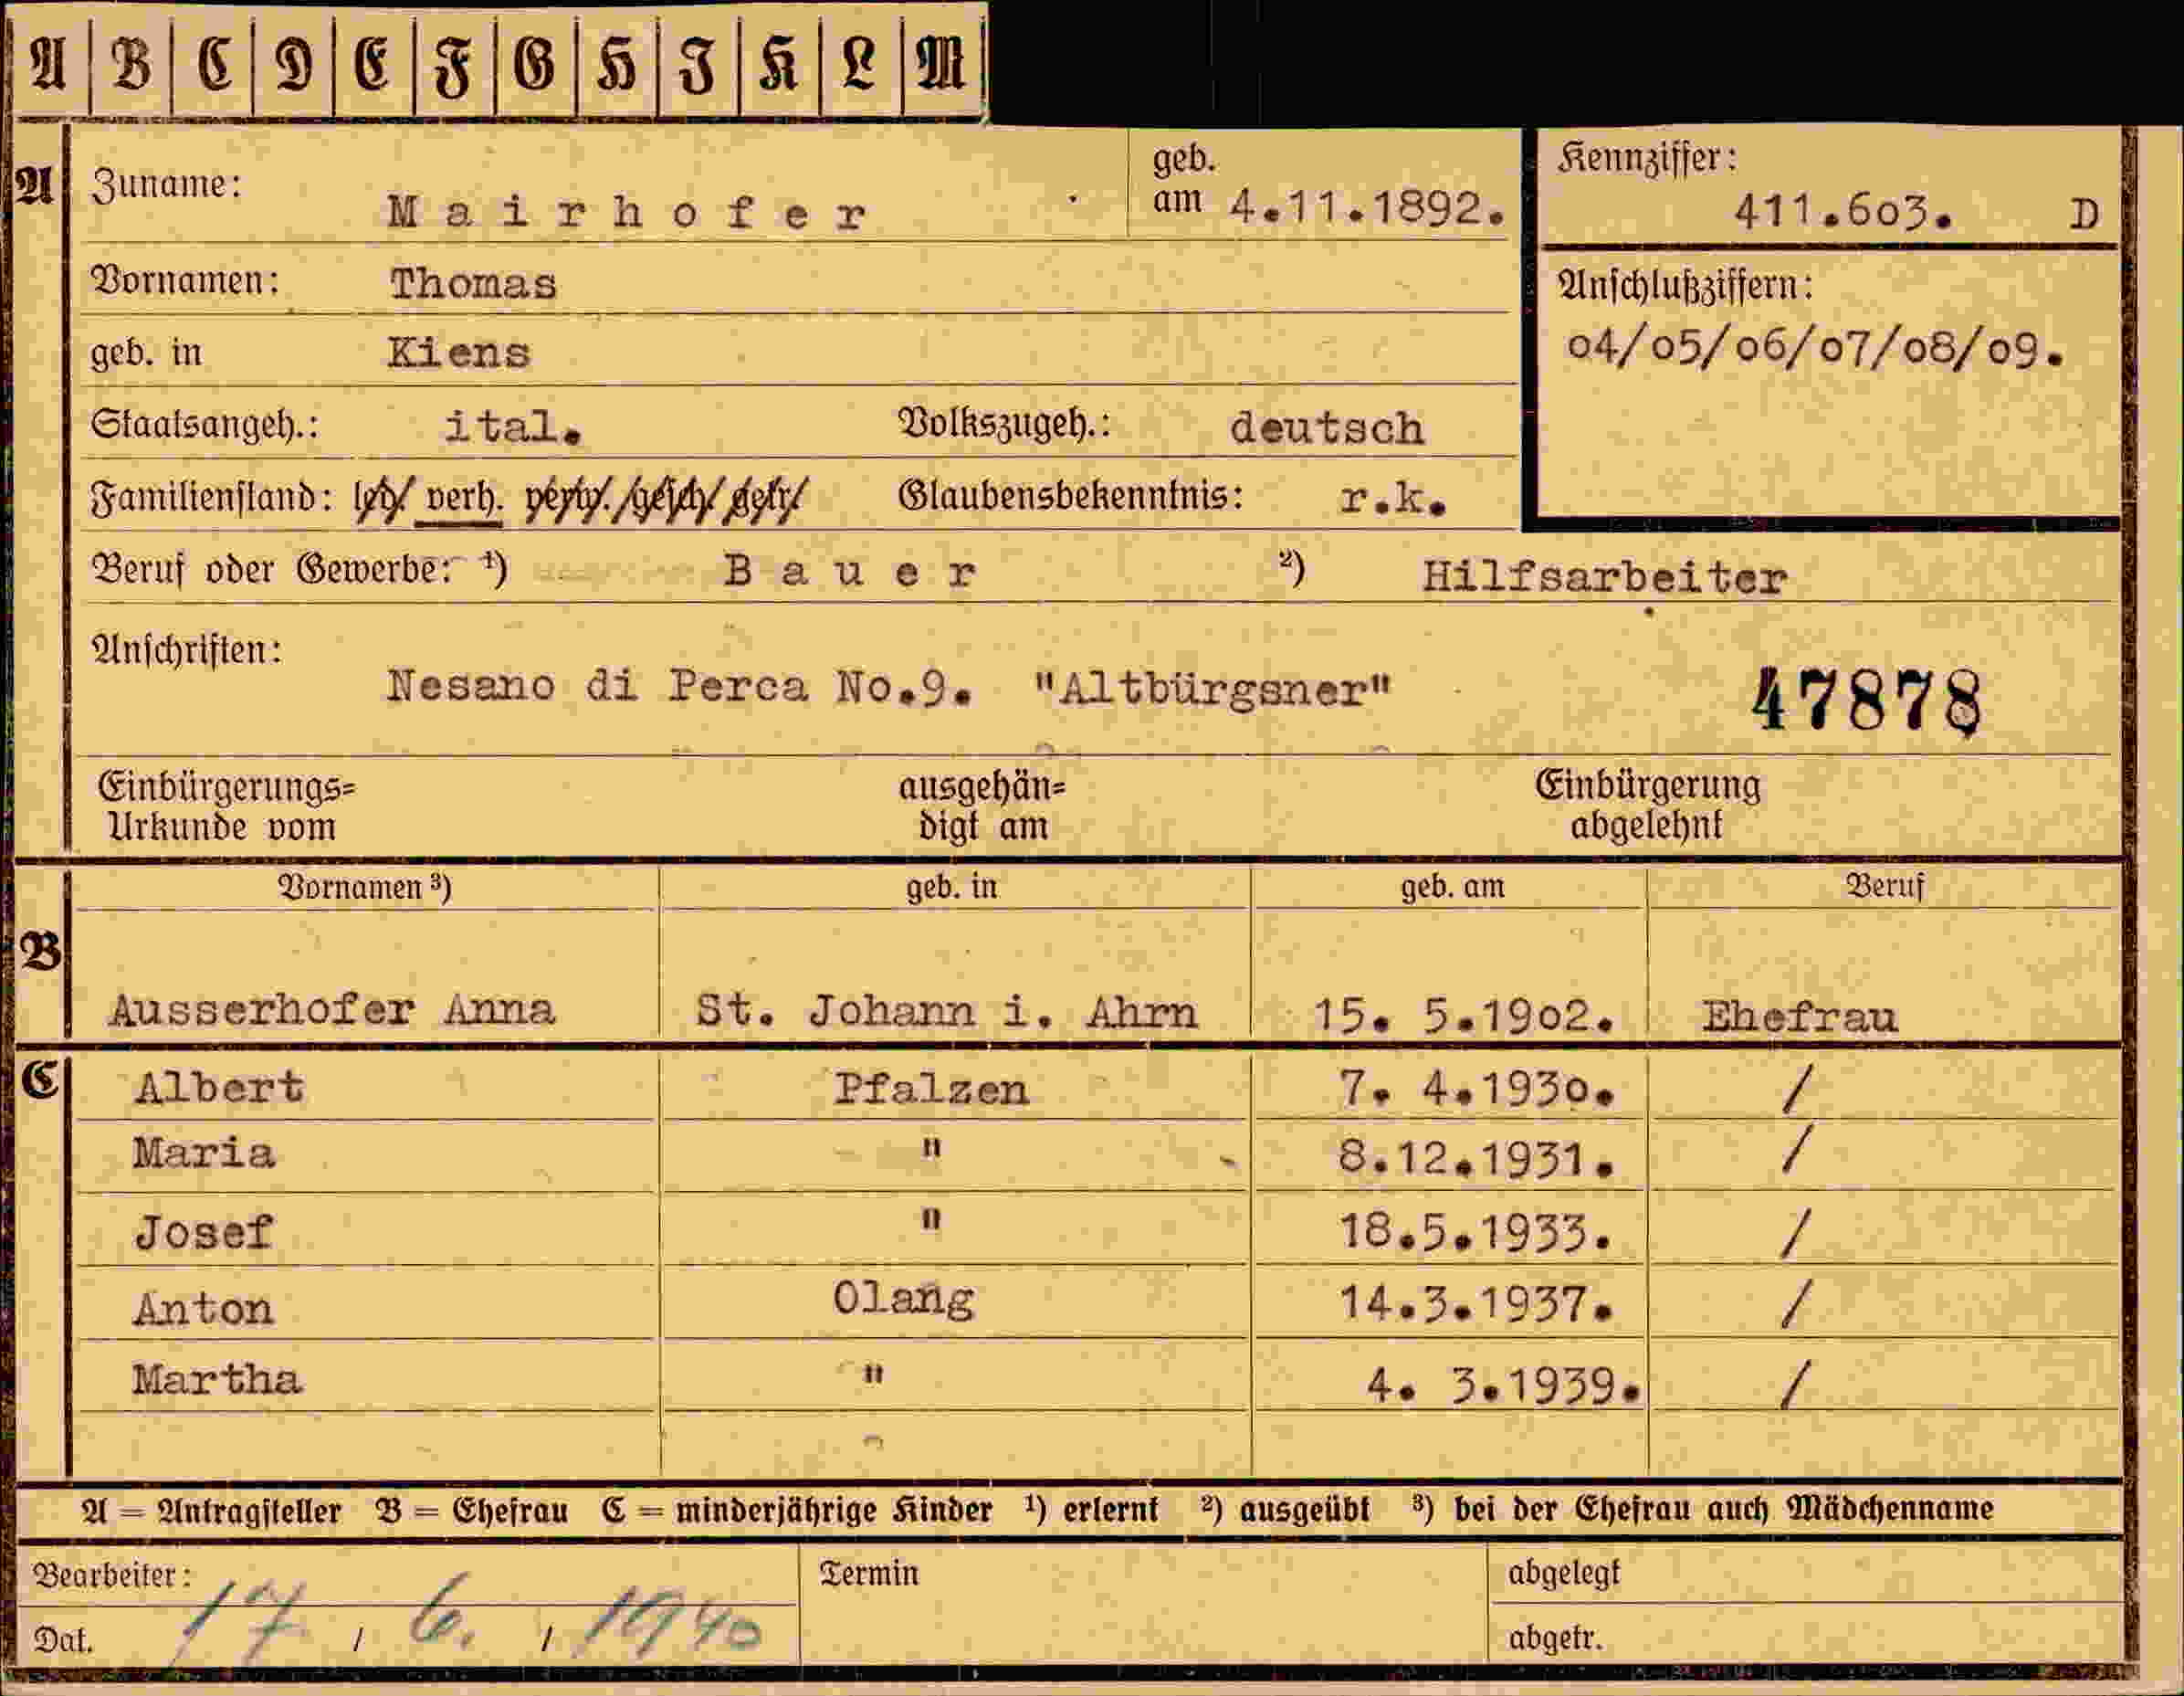 A B C D E F G H I K L M
A Zuname: Mairhofer geb. am 4.11.1892. Kennziffer: 411.603. D
Vornamen: Thomas Anschlußziffern:
geb. in Kiens 04/05/06/07/08/09.
Staatsangeh.: ital. Volkszugeh.: deutsch
Familienstand: led. verh. verw. gesch. getr. Glaubensbekenntnis: r.k.
Beruf oder Gewerbe: ¹) Bauer ²) Hilfsarbeiter
Anschriften:
Nesano di Perca No.9. "Altbürgsner" 47878
Einbürgerungs= ausgehän= Einbürgerung
Urkunde vom digt am abgelehnt
Vornamen ³) geb. in geb. am Beruf
B
Ausserhofer Anna St. Johann i. Ahrn 15. 5.1902. Ehefrau
C Albert Pfalzen 7. 4.1930. /
Maria " 8.12.1931. /
Josef " 18.5.1933. /
Anton Olang 14.3.1937. /
Martha " 4. 3.1939. /
A = Antragsteller B = Ehefrau C = minderjährige Kinder ¹) erlernt ²) ausgeübt ³) bei der Ehefrau auch Mädchenname
Bearbeiter: Termin abgelegt
Dat. 17 / 6. / 1940 abgetr.